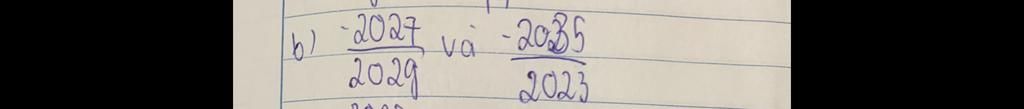 b) -2027/2029 và -2025/2023